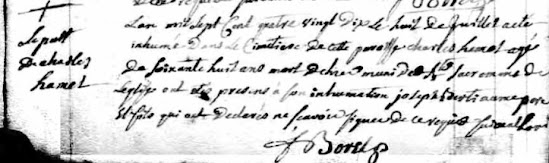 Sepult
de charles
hamel
Lan mil sept Cent quatre vingt dix le huit de juillet a ete
inhumé dans le Cimetiere de cette paroisse charles hamel agé
de soixante huit ans mort de chez muni des sacremens de
leglise ont été presens a son inhumation joseph Etienne pere
et fils qui ont declarés ne scavoir signer de ce requis suivant lord
f Borel